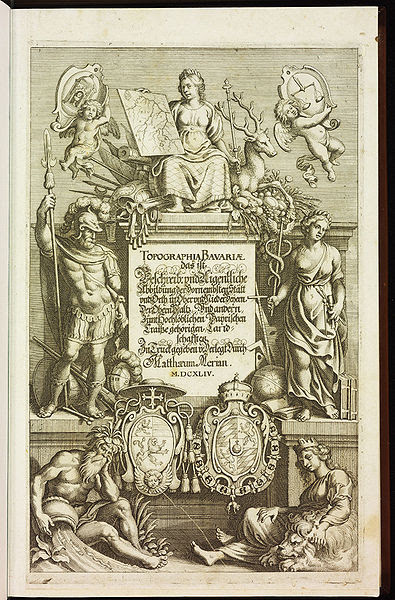 TOPOGRAPHIA BAVARIÆ
das ist,
Beschreib: vnd Eigentliche
Abbildung der Vornembsten Stätt
vnd Orth, in Ober vnd Nieder Beyern,
Der Obern Pfaltz, Vnd andern,
Zum Hochlöblichen Bayrischen
Craiße gehörigen, Land-
schafften.
In Truck gegeben v. Verlegt durch
Matthæum Merian.
M.DCXLIV.